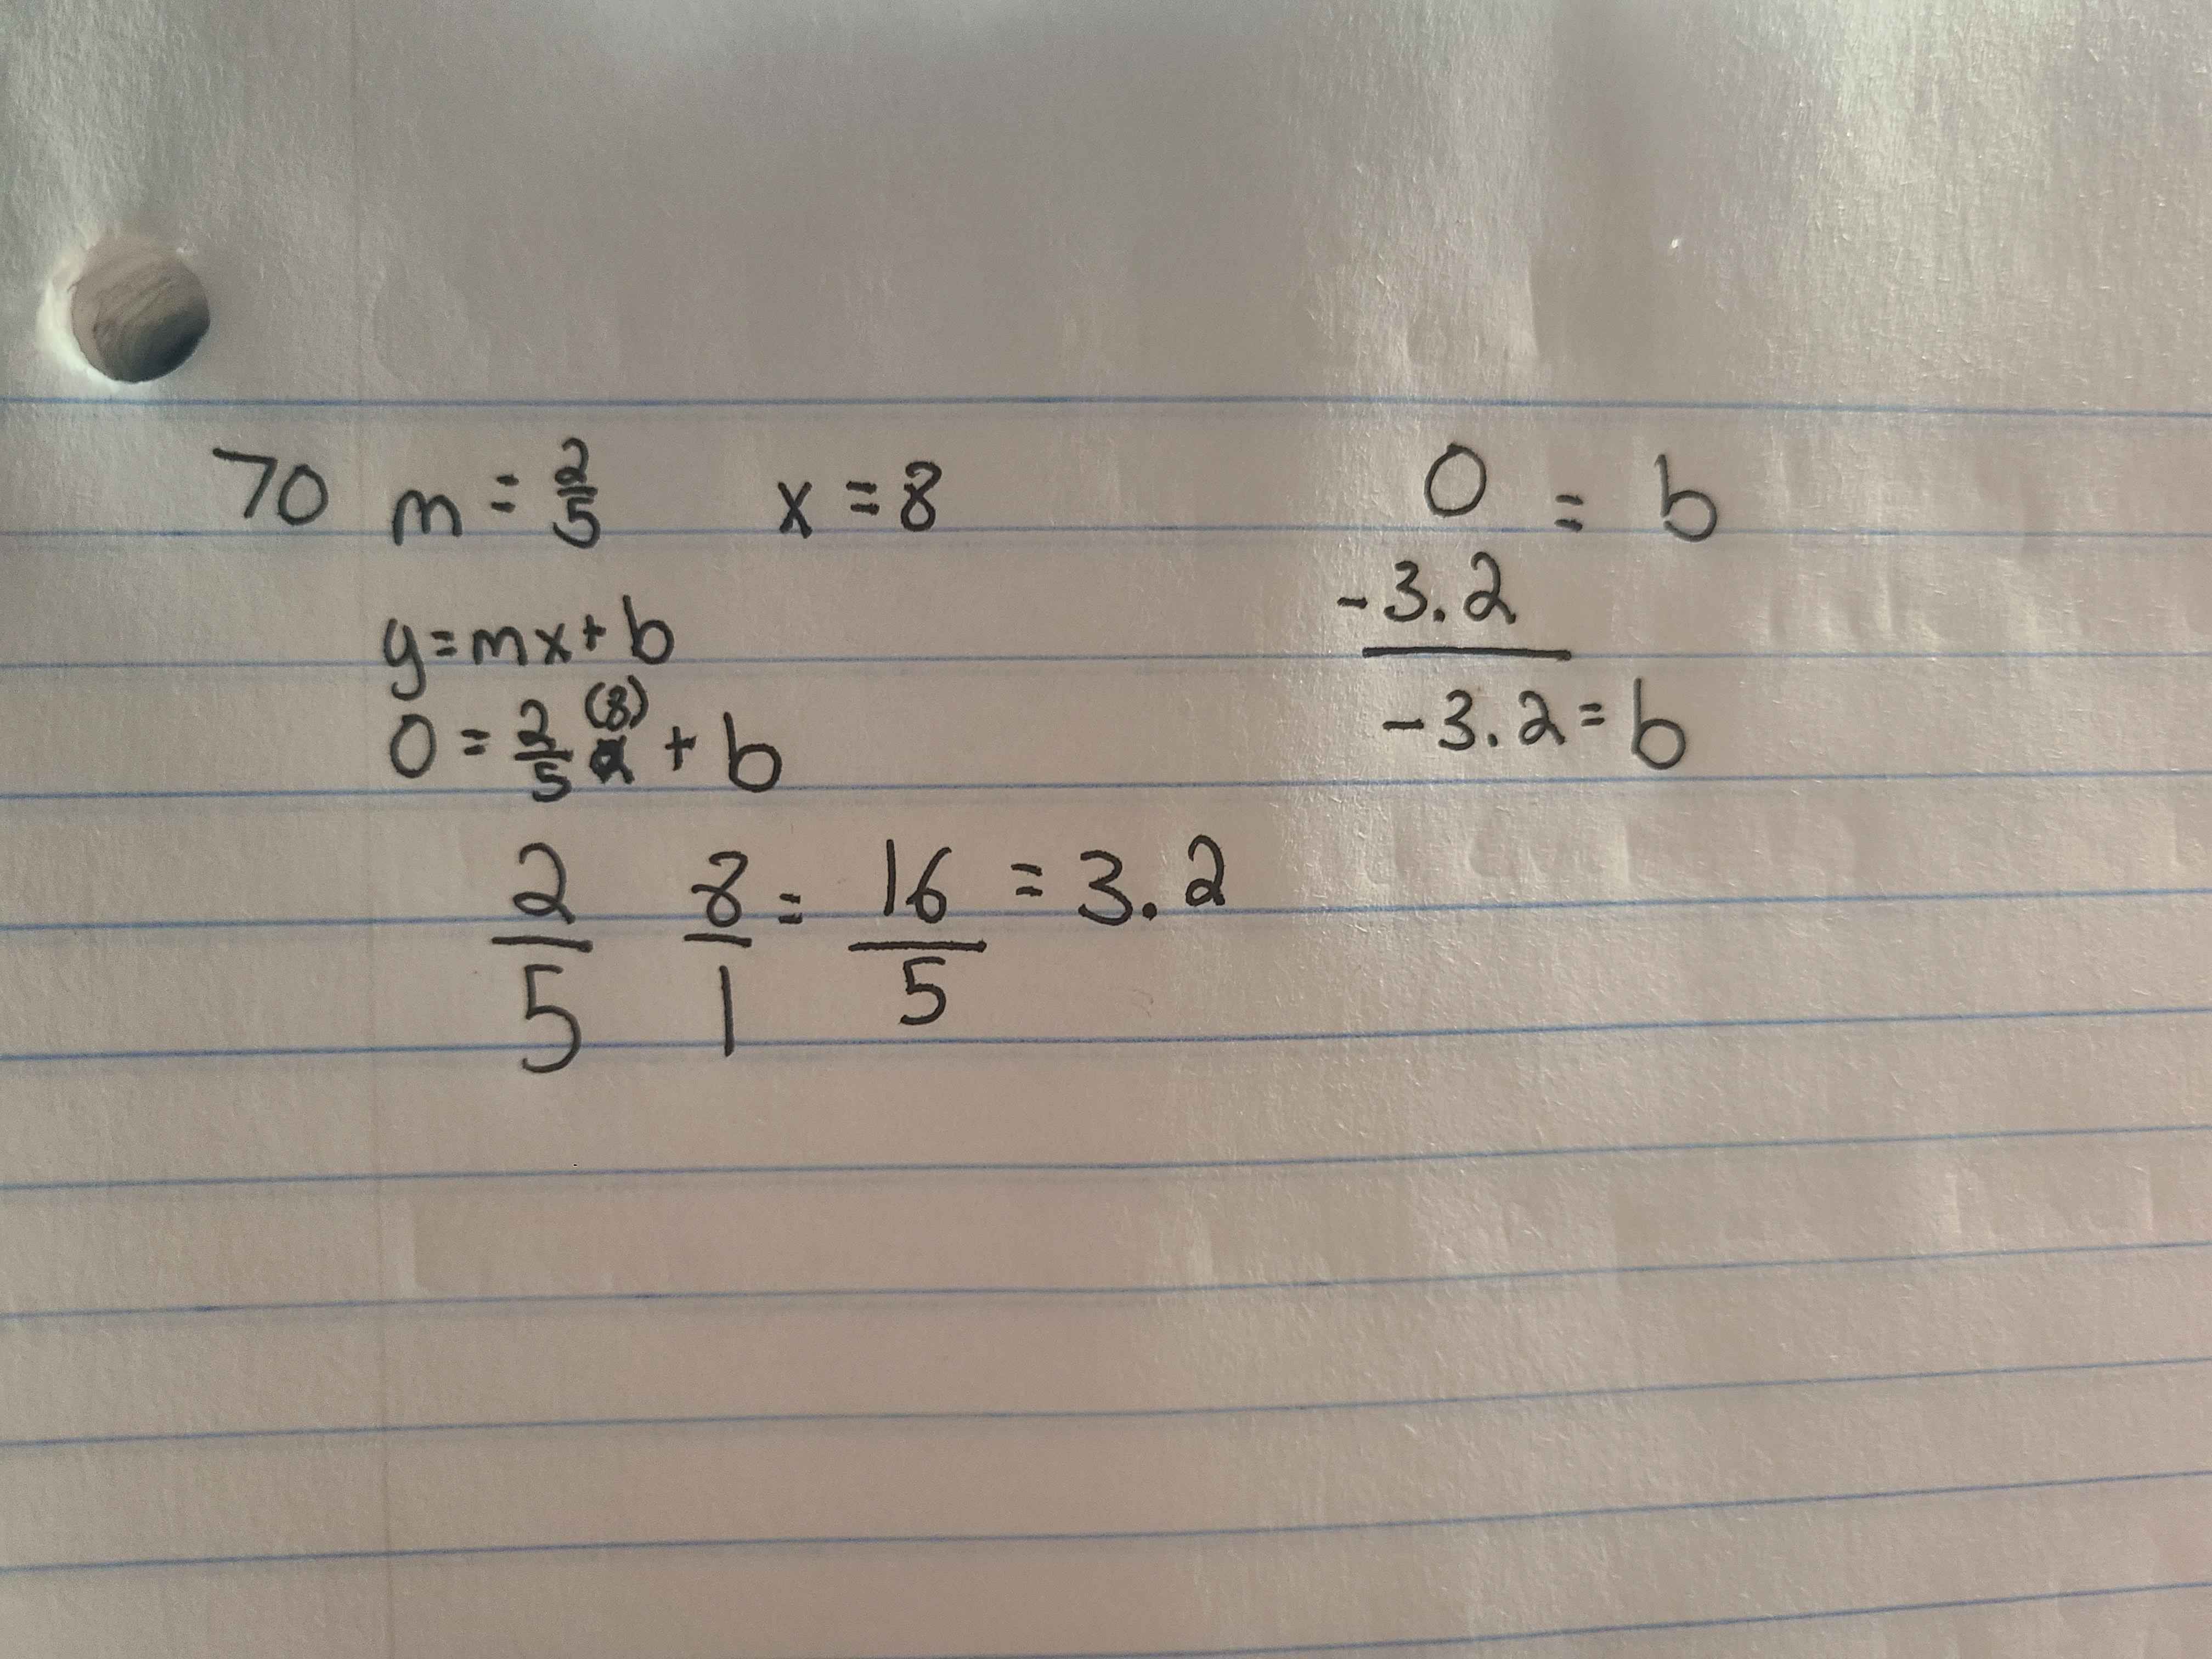 70 m = 2/5 x = 8
y = mx + b
0 = 2/5 (8) + b
2/5 8/1 = 16/5 = 3.2
0 = b
-3.2
-3.2 = b